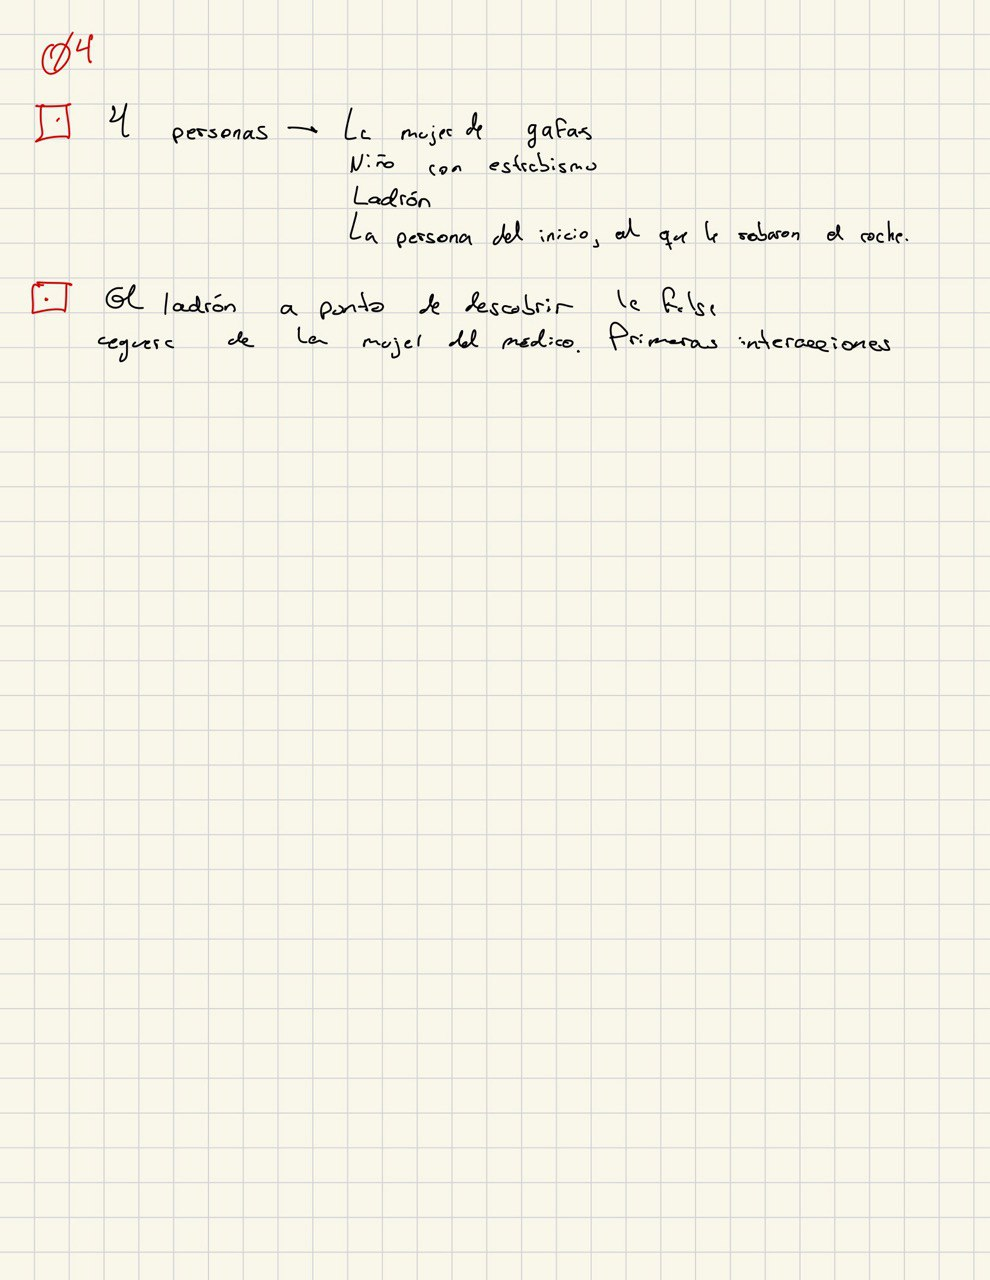 04
4 personas → La mujer de gafas
Niño con estrabismo
Ladrón
La persona del inicio, al que le robaron el coche.
El ladrón a punto de descubrir la falsa
ceguera de la mujer del médico. Primeras interacciones